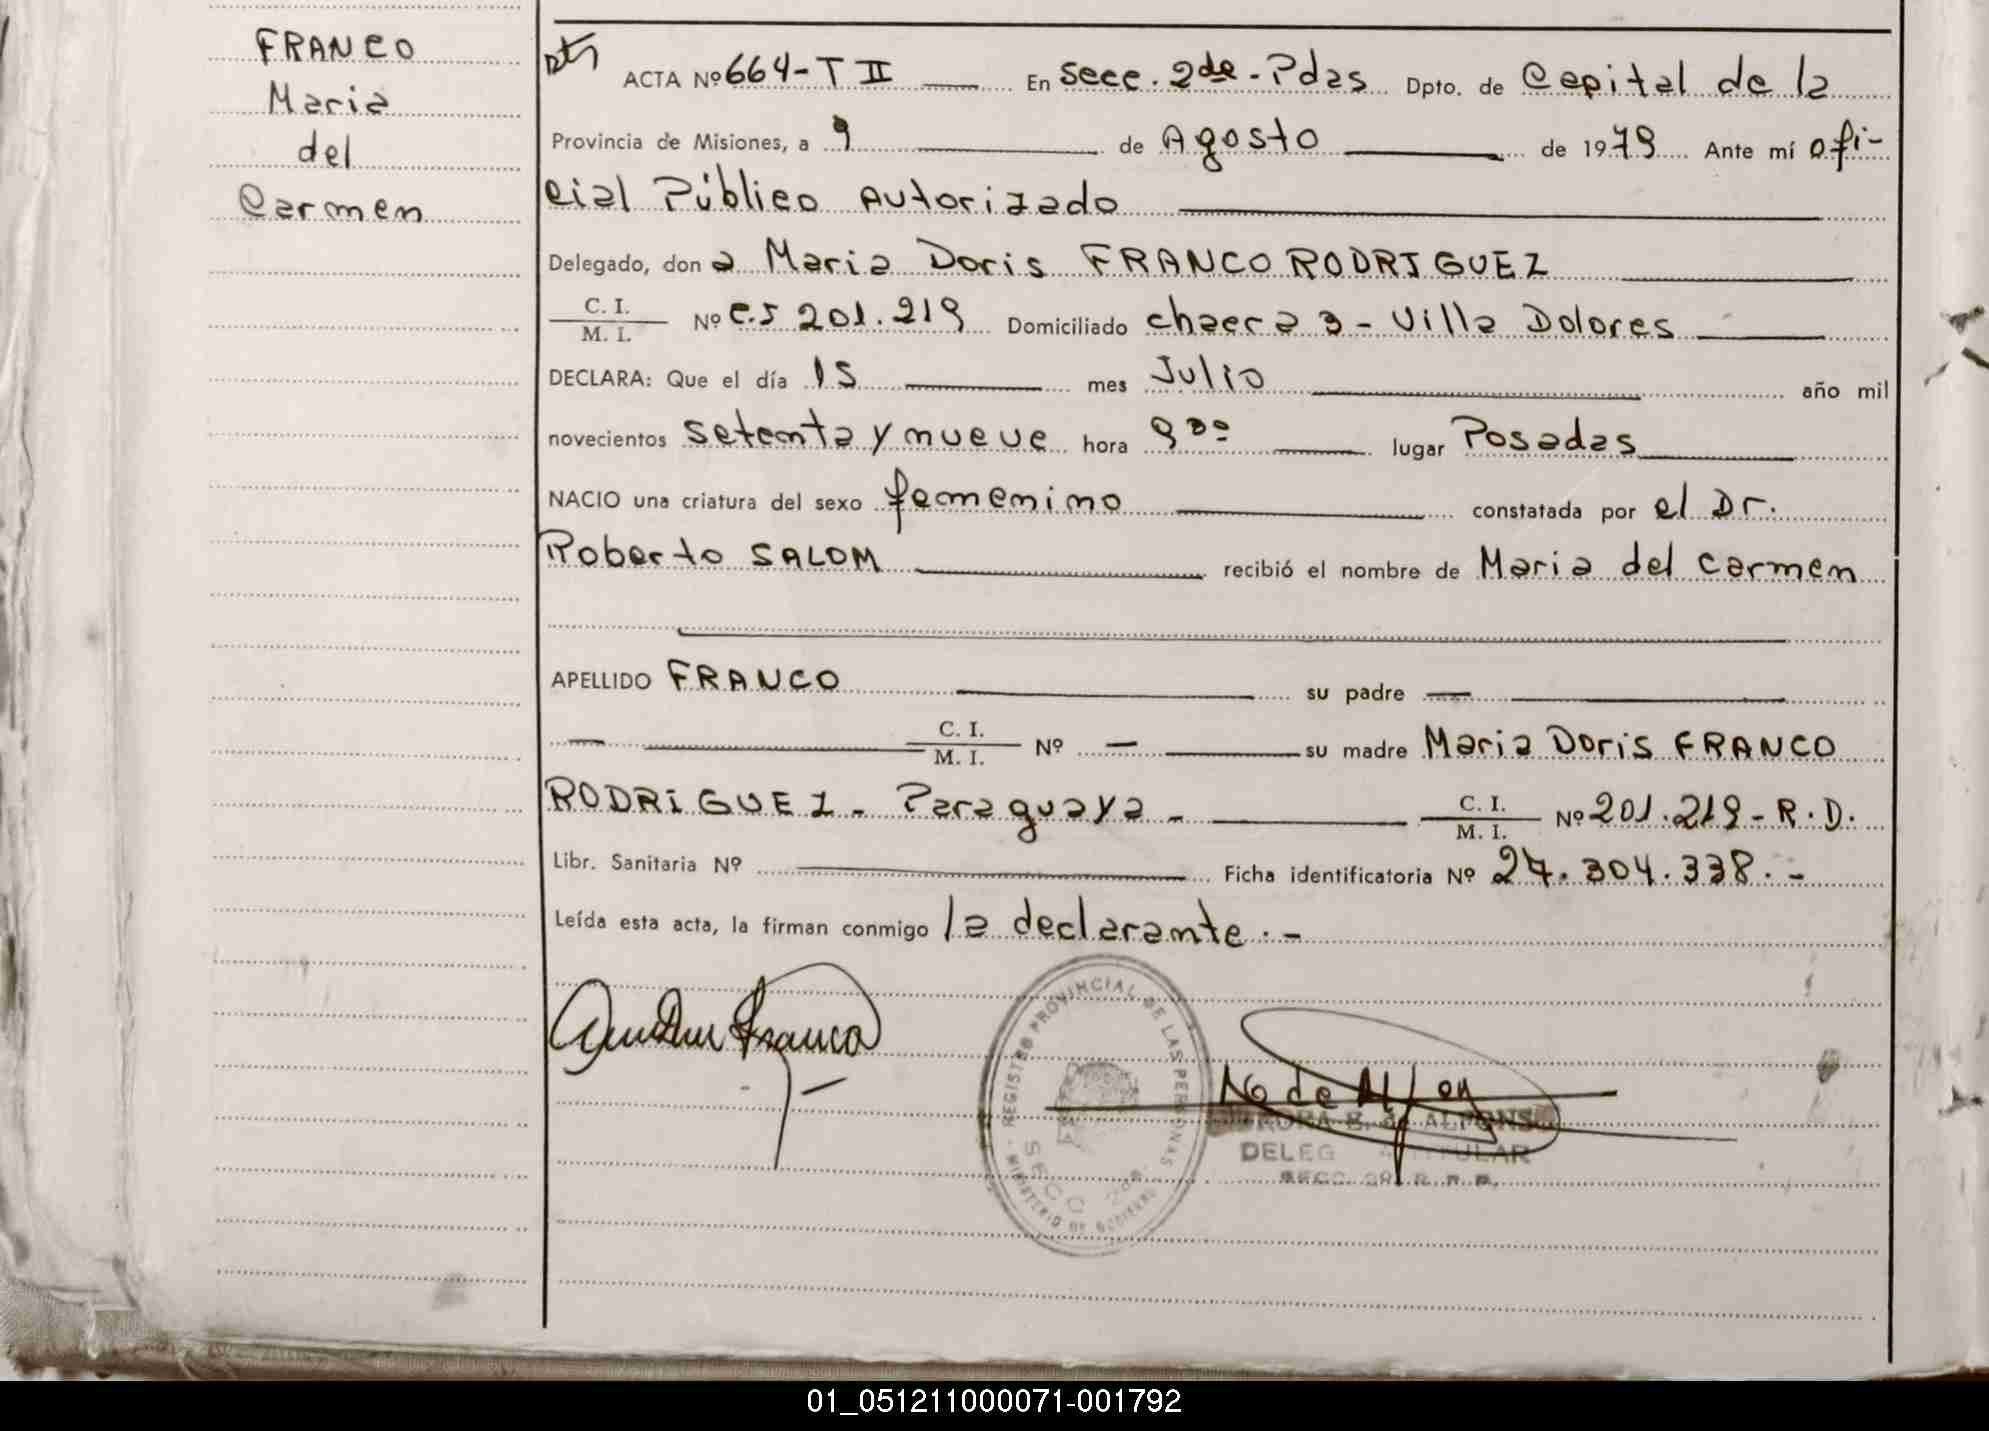 FRANCO
Maria
del
Carmen
ACTA Nº 664-T II En Secc. 2da - Pdas Dpto. de Capital de la
Provincia de Misiones, a 9 de Agosto de 1979 Ante mí ofi-
cial Público Autorizado
Delegado, don a Maria Doris FRANCO RODRIGUEZ
C. I.
M. I.
Nº C.I 201.219 Domiciliado chacra 3 - Villa Dolores
DECLARA: Que el día 15 mes Julio año mil
novecientos setenta y nueve hora 9 lugar Posadas
NACIO una criatura del sexo femenino constatada por el Dr.
Roberto SALOM recibió el nombre de Maria del Carmen
APELLIDO FRANCO su padre —
— C. I.
M. I.
Nº — su madre Maria Doris FRANCO
RODRIGUEZ - Paraguaya - C. I.
M. I.
Nº 201.219 - R.D.
Libr. Sanitaria Nº Ficha identificatoria Nº 27.304.338.-
Leída esta acta, la firman conmigo la declarante.-
Franco
REGISTRO PROVINCIAL DE LAS PERSONAS
SECC 2da
MINISTERIO DE GOBIERNO
DELEG TITULAR
01_051211000071-001792